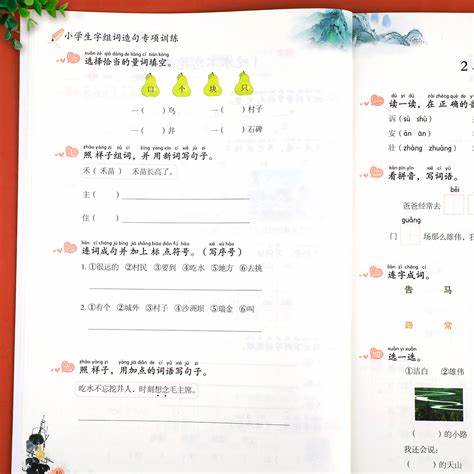 小学生字组词造句专项训练
xuǎn zé qià dàng de liàng cí tián kòng
选择恰当的量词填空。
口 个 块 只
一（ ）鸟 一（ ）村子
一（ ）井 一（ ）石碑
zhào yàng zi zǔ cí bìng yòng xīn cí xiě jù zi
照样子组词，并用新词写句子。
禾（禾苗） 禾苗长高了。
主（ ）
住（ ）
lián cí chéng jù bìng jiā shàng biāo diǎn fú hào xiě xù hào
连词成句并加上标点符号。（写序号）
1. ①很远的 ②村民 ③要到 ④吃水 ⑤地方 ⑥去挑
2. ①有个 ②城外 ③村子 ④沙洲坝 ⑤瑞金 ⑥叫
zhào yàng zi yòng jiā diǎn de cí yǔ xiě jù zi
照样子，用加点的词语写句子。
吃水不忘挖井人，时刻想念毛主席。
2
dú yi dú zài zhèng què de
读一读，在正确的音
诉（sù shù）
安（ān àn）
壮（zhàng zhuàng）
kàn pīn yīn xiě cí yǔ
看拼音，写词语。
爸爸经常去
guǎng
门 场那么雄伟
lián zì chéng cí
连字成词。
告 马
路 常
xuǎn yi xuǎn
选一选。
①洁白 ②雄伟
（ ）的小路
我还会说：
（ ）的天山